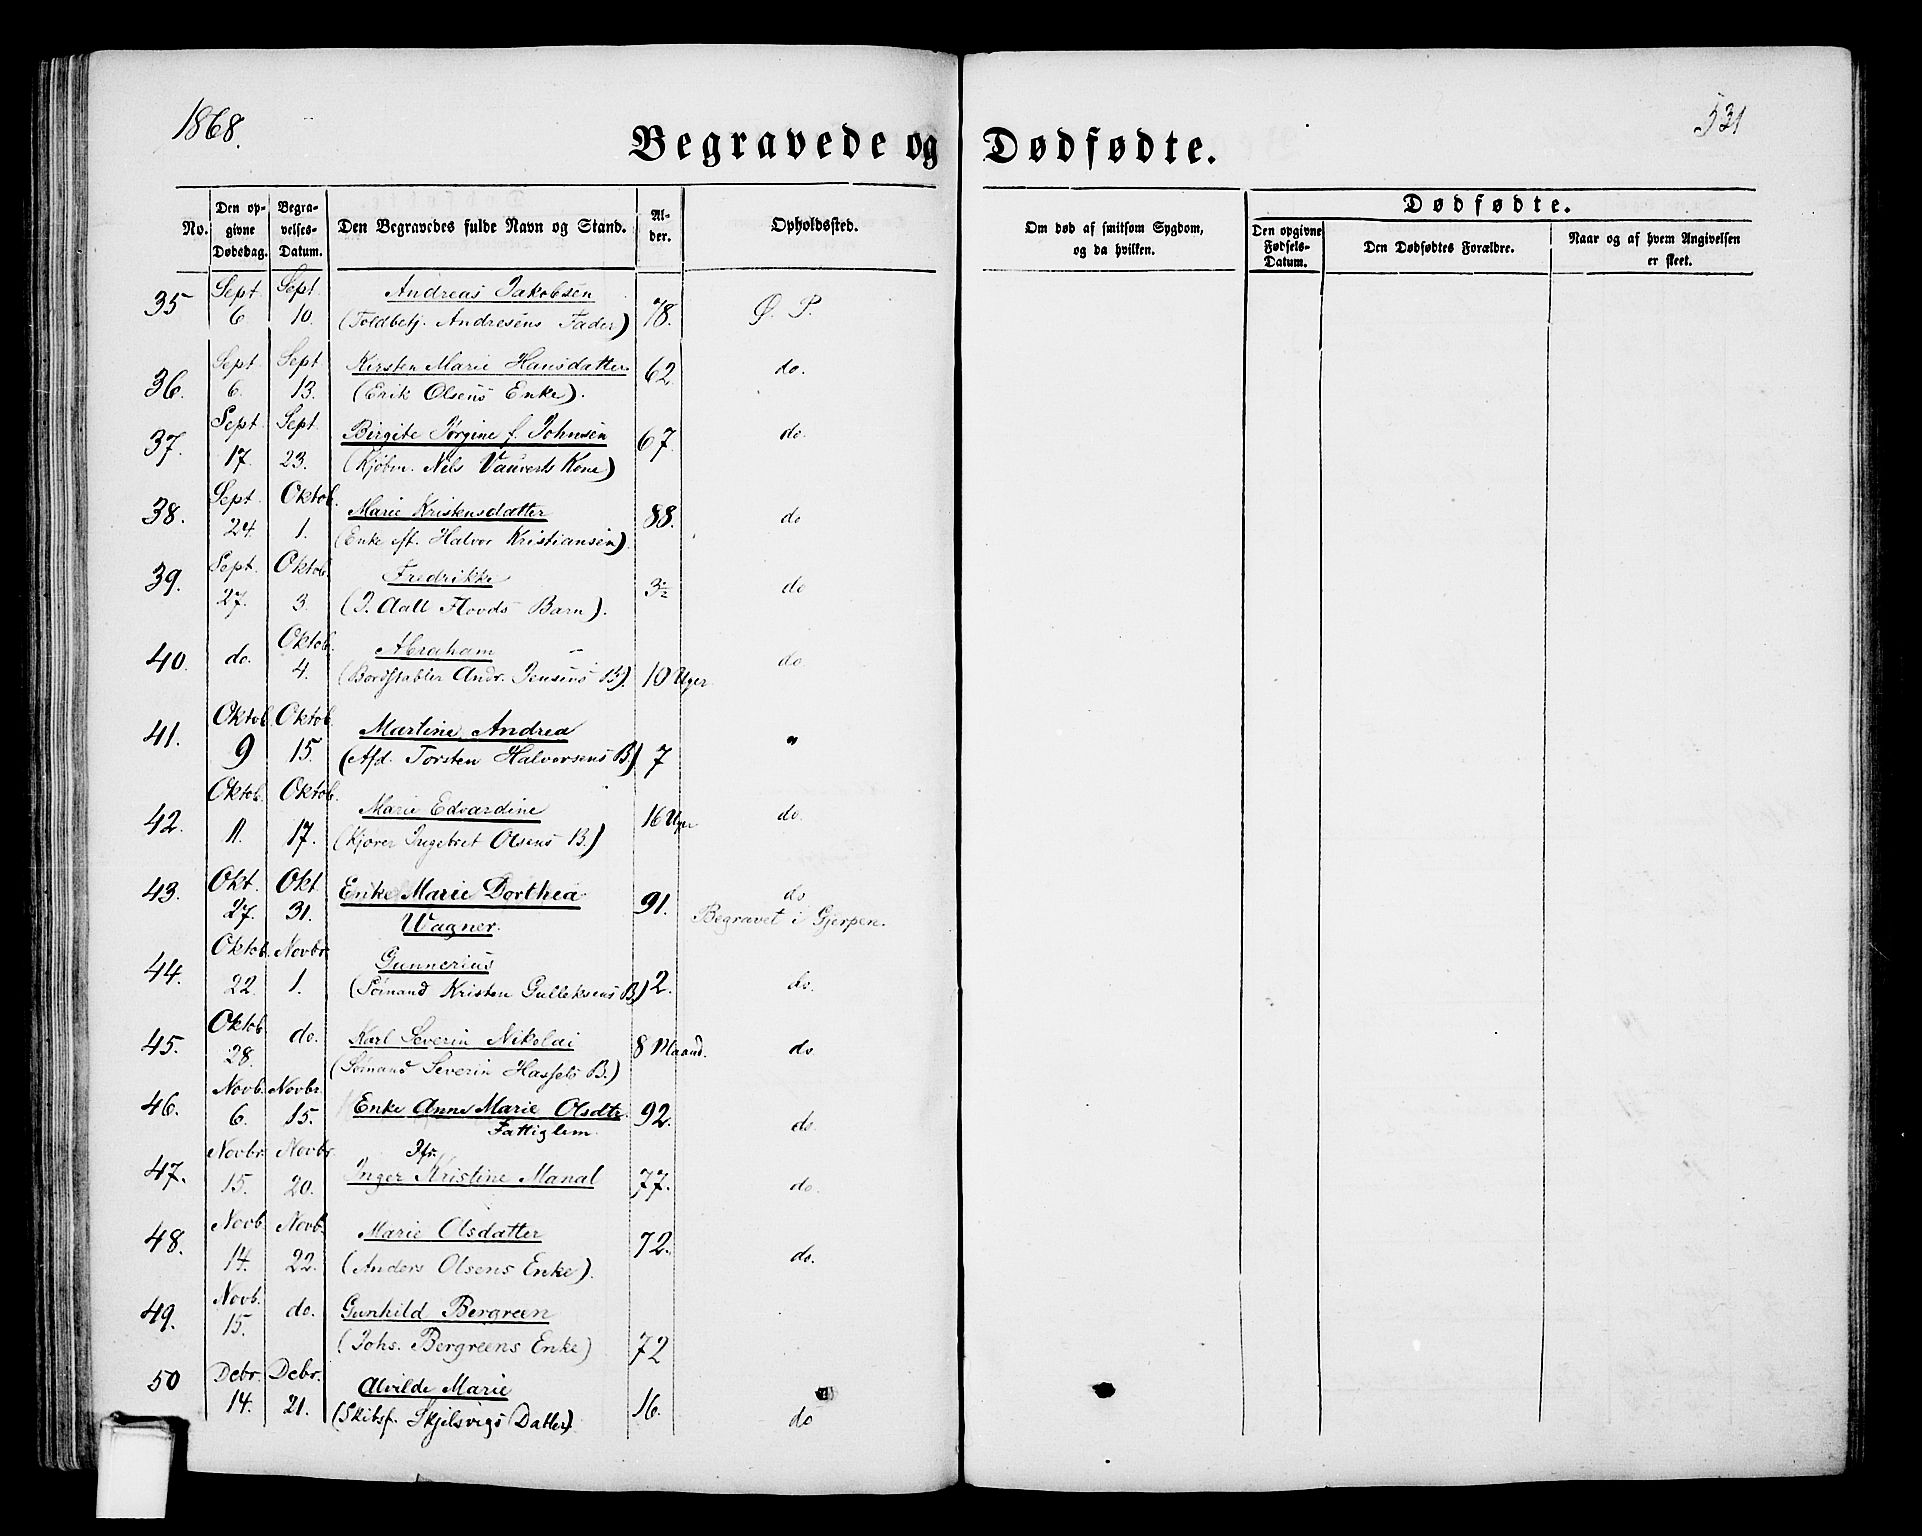 1868.
531
Begravede og Dødfødte.
No.
Den opgivne Dødsdag.
Begravelses-Datum.
Den Begravedes fulde Navn og Stand.
Alder.
Opholdssted.
Om død af smitsom Sygdom, og da hvilken.
Dødfødte.
Den opgivne Fødsels-Datum.
Den Dødfødtes Forældre.
Naar og af hvem Angivelsen er skeet.
35 Sept. 6 Sept 10. Andreas Jakobsen 78. Ø. P.
(Toldbetj. Andresens Fader)
36. Sept 6. Sept 13. Kirsten Marie Hansdatter 62. do.
(Erik Olsens Enke).
37. Sept. 17. Sept 23. Birgite Jørgine f. Johnsen 67. do.
(Kjøbm. Nils Vauverts Kone)
38. Sept. 24. Oktob. 1. Marie Kristensdatter 88. do
(Enke eft. Halvor Kristiansen).
39. Sept. 27. Oktob. 3. Fredrikke 3½ do
(J. Aall Flovds Barn).
40. do. Oktob. 4. Abraham 10 Uger do.
(Bordstabler Andr. Jensens B).
41. Oktob. 9 Oktob. 15. Martine Andrea 7 "
(Afd. Torsten Halvorsens B.)
42. Oktob. 11. Oktob. 17. Marie Edvardine 16 Uger do.
(Kjører Ingebret Olsens B.)
43. Okt. 27. Okt 31. Enke Marie Dorthea 91. do
Wagner. Begravet i Gjerpen.
44. Oktob. 22. Novbr. 1. Gunnerius 2. do.
(Sømand Kristen Gulleksens B)
45. Oktob. 28. do. Karl Severin Nikolai 8 Maand. do.
(Sømand Severin Hassels B.)
46. Novb. 6. Novbr. 15. Enke Anne Marie Olsdtr. 92. do.
Fattiglem.
47. Novbr. 15. Novbr. 20. Jfr. Inger Kristine Manal 77. do.
48. Novb. 14. Novb. 22. Marie Olsdatter 72. do.
(Anders Olsens Enke).
49. Novb. 15. do. Gunhild Bergreen
(Johs. Bergreens Enke) 72
50 Debr. 14. Debr. 21. Alvilde Marie 16. do
(Skibsf. Skjelsvigs Datter).